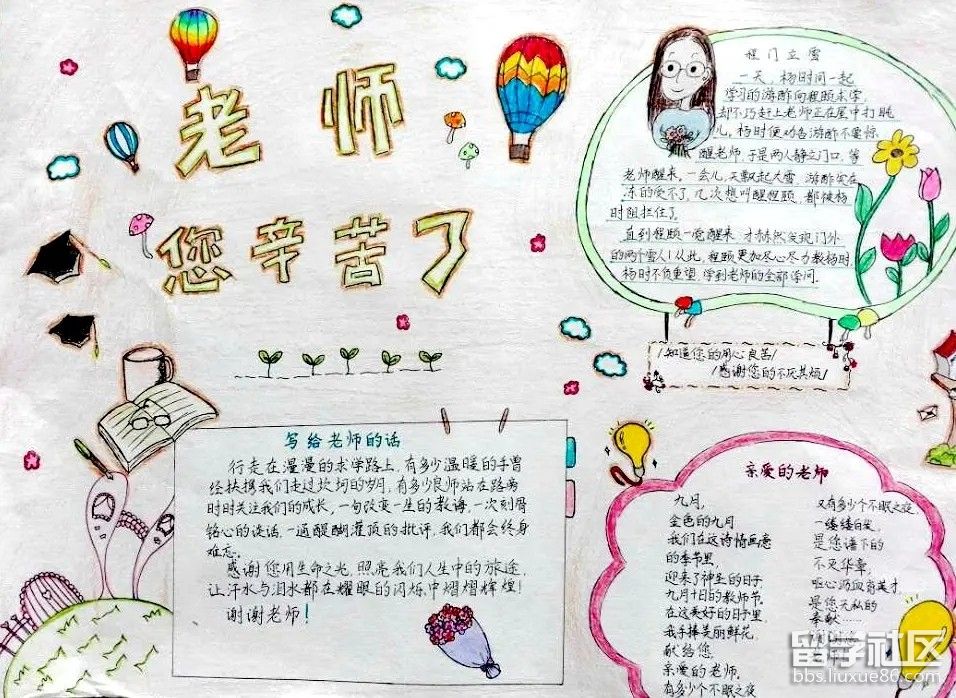 老师
您辛苦了
程门立雪
一天，杨时同一起
学习的游酢向程颐求学，
却不巧赶上老师正在屋中打盹
儿，杨时便劝告游酢不要惊
醒老师，于是两人静立门口，等
老师醒来，一会儿，天飘起大雪，游酢实在
冻的受不了，几次想叫醒程颐，都被杨
时阻拦住了，
直到程颐一觉醒来，才赫然发现门外
的两个雪人！从此，程颐更加尽心尽力教杨时，
杨时不负重望，学到老师的全部学问。
知道您的用心良苦
感谢您的不厌其烦
写给老师的话
行走在漫漫的求学路上，有多少温暖的手曾
经扶携我们走过坎坷的岁月，有多少良师站在路旁
时时关注我们的成长，一句改变一生的教诲，一次刻骨
铭心的谈话，一遍醍醐灌顶的批评，我们都会终身
难忘。
感谢您用生命之光，照亮我们人生中的旅途，
让汗水与泪水都在耀眼的闪烁中熠熠辉煌！
谢谢老师！
亲爱的老师
九月，
金色的九月
我们在这诗情画意
的季节里，
迎来了神圣的日子
九月十日的教师节，
在这美好的日子里
我手捧美丽鲜花，
献给您，
亲爱的老师。
有多少个不眠之夜
又有多少个不眠之夜
一缕缕白发，
是您谱下的
不灭华章，
呕心沥血育英才，
是您无私的
奉献……
留学社区
bbs.liuxue86.com